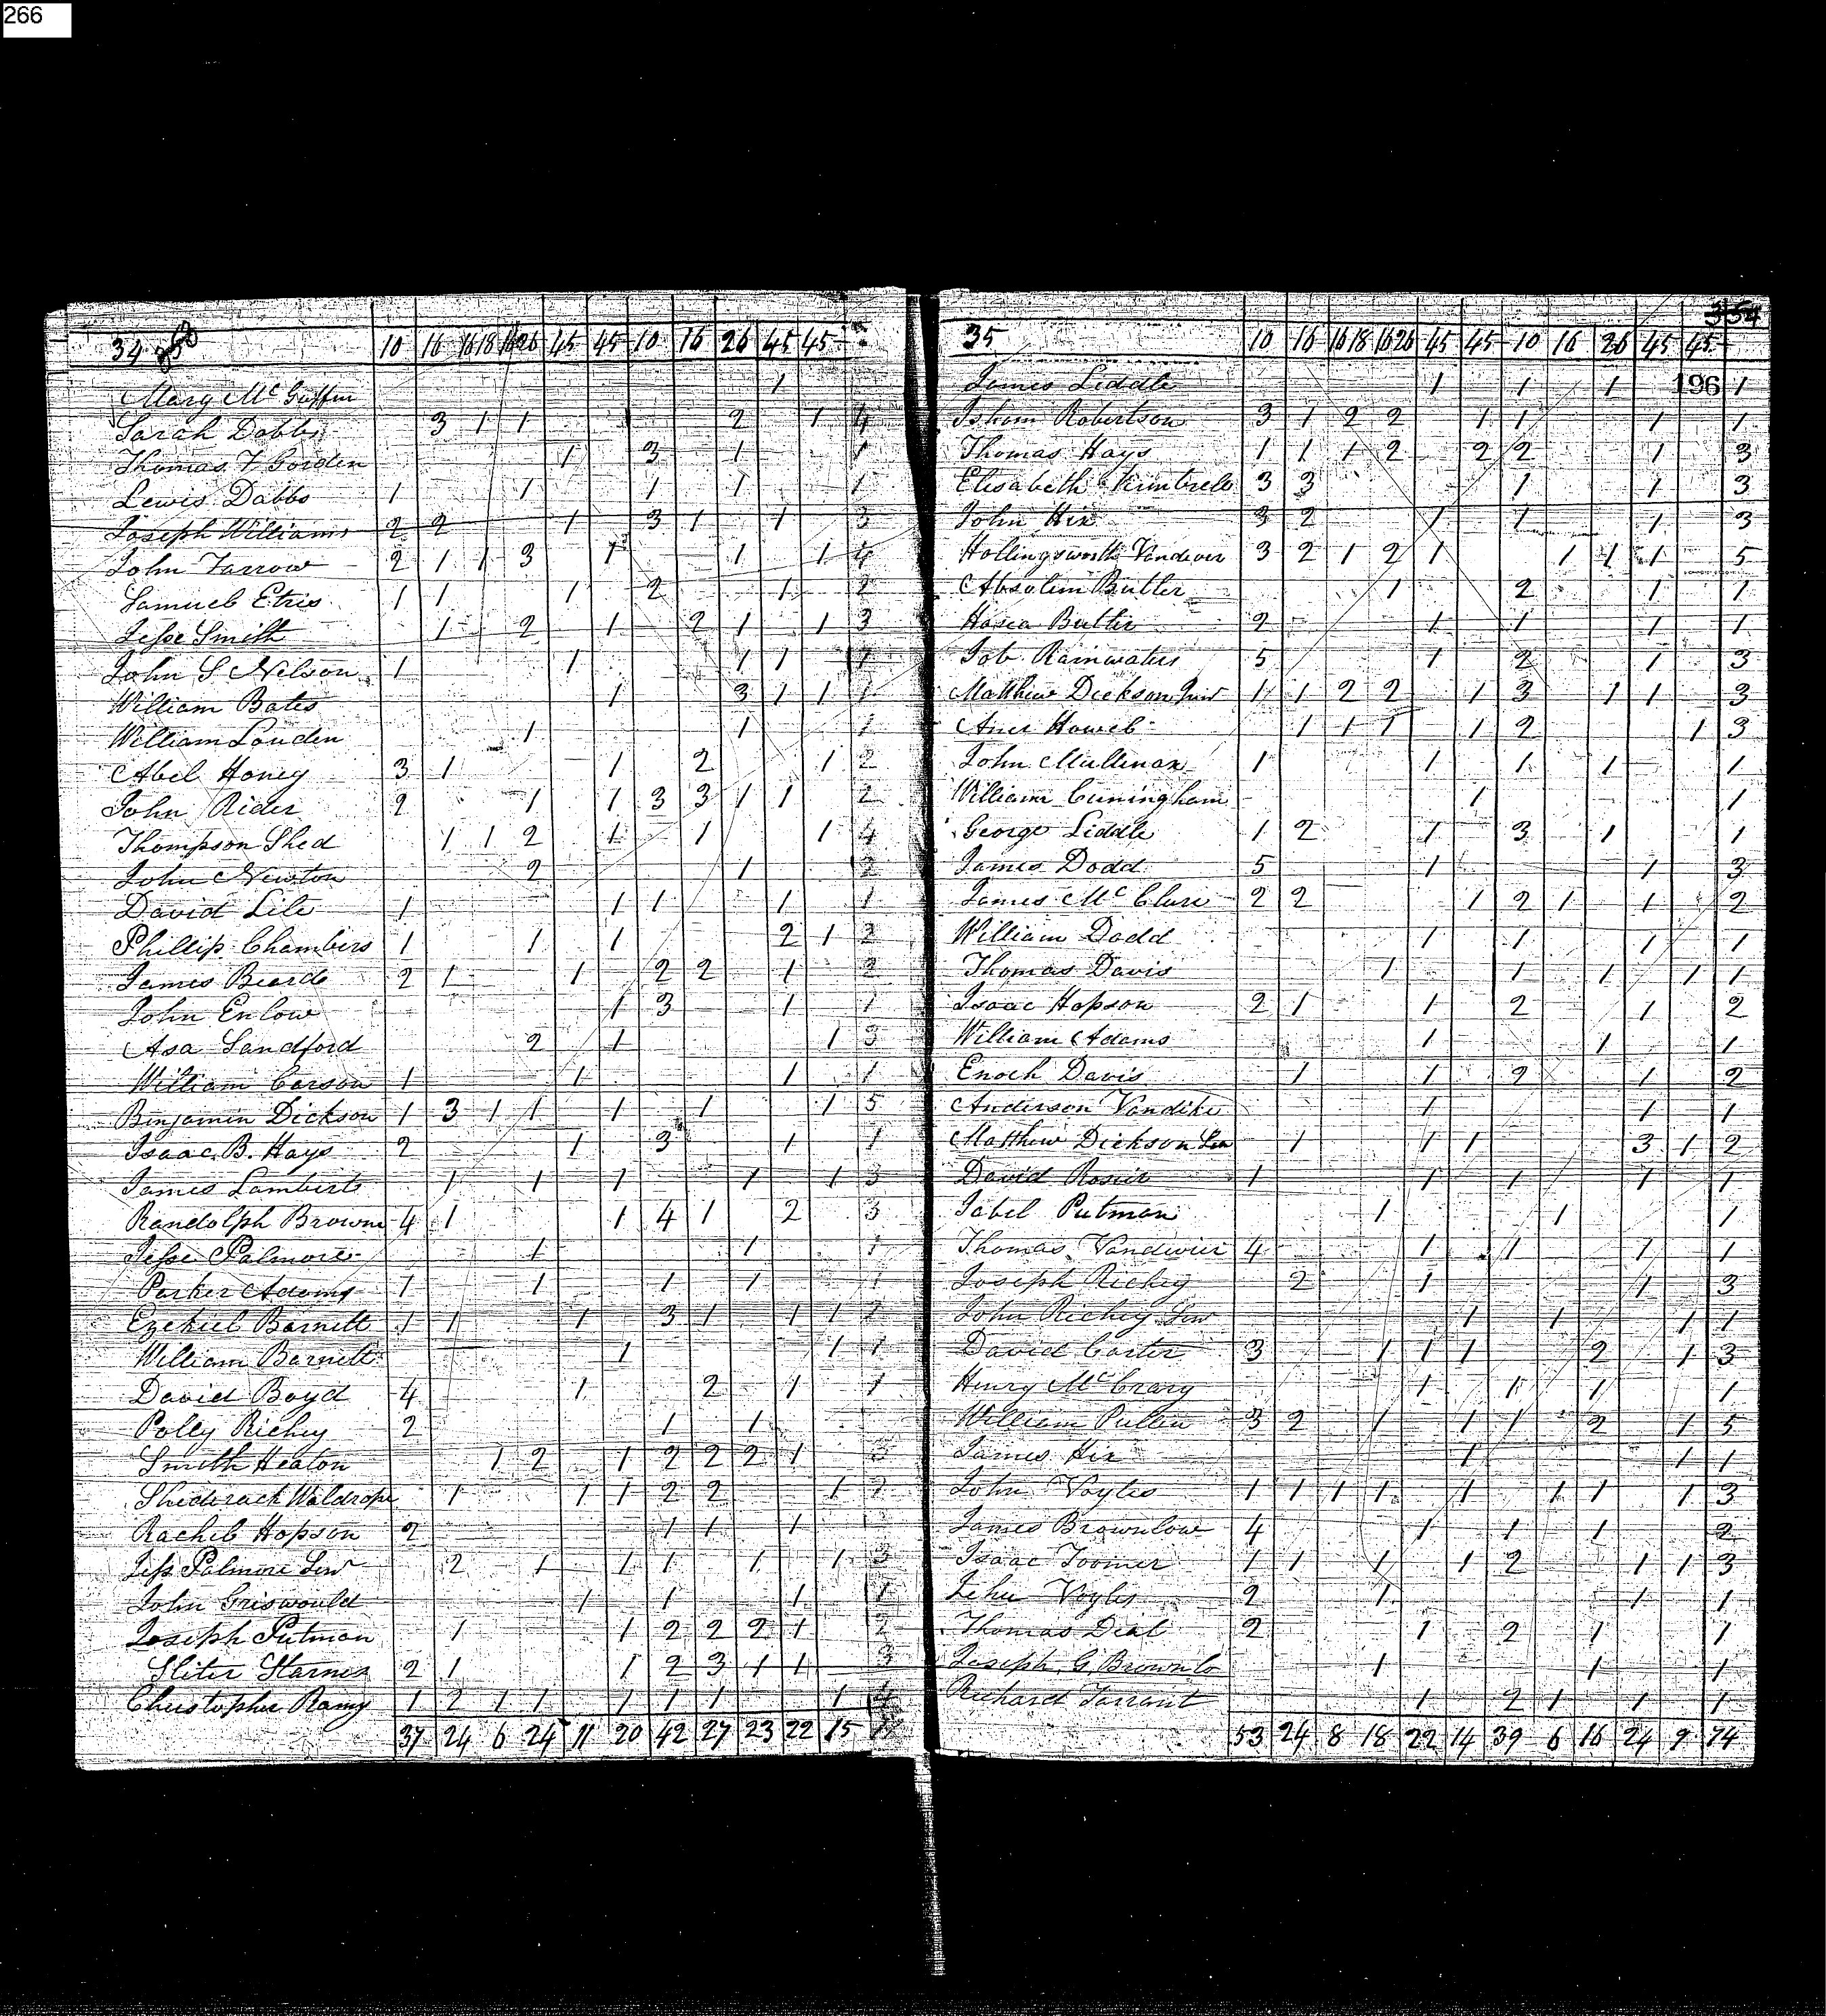 266
34 10 16 16 18 16 26 45 45 10 16 26 45 45
Mary Mc Guffin 1
Sarah Dobbs 3 1 1 2 1 4
Thomas F Gorden 1 3 1 1
Lewis Dabbs 1 1 1 1 1
Joseph Williams 2 2 1 3 1 1 3
John Farrow 2 1 1 3 1 1 1 4
Samuel Etris 1 1 1 2 1 2
Jesse Smith 1 2 1 2 1 1 3
John S Nelson 1 1 1 1 1
William Bates 1 3 1 1 1
William Louden 1 1 1
Abel Honey 3 1 1 2 1 2
John Rider 2 1 1 3 3 1 1 2
Thompson Shed 1 1 2 1 1 1 4
John Newton 2 1 2
David Lile 1 1 1 1 1
Phillip Chambers 1 1 1 2 1 2
James Beard 2 1 1 2 2 1 2
John Enlow 1 3 1 1
Asa Sandford 2 1 1 3
William Carson 1 1 1 1
Benjamin Dickson 1 3 1 1 1 1 1 5
Isaac B. Hays 2 1 3 1 1
James Lambert 1 1 1 1 1 3
Randolph Browne 4 1 1 4 1 2 3
Jesse Palmore 1 1 1
Parker Adams 1 1 1 1 1
Ezekiel Barnett 1 1 1 3 1 1 1 2
William Barnett 1 1 1
David Boyd 4 1 2 1 1
Polly Richey 2 1 1
Smith Heaton 1 2 1 2 2 2 1 3
Shederach Waldrope 1 1 1 2 2 1 2
Rachel Hopson 2 1 1 1
Jess Palmore Senr 2 1 1 1 1 1 3
John Griswould 1 1 1 1
Joseph Putman 1 1 2 2 2 1 2
Sliter Starnes 2 1 1 2 3 1 1 3
Christopher Ramy 1 2 1 1 1 1 1 1 4
37 24 6 24 11 20 42 27 23 22 15
35 10 16 16 18 16 26 45 45 10 16 26 45 45 354
James Liddle 1 1 1 196 1
Isham Robertson 3 1 2 2 1 1 1 1
Thomas Hays 1 1 1 2 2 2 1 3
Elisabeth Kimbrell 3 3 1 1 3
John Hix 3 2 1 1 1 3
Hollingsworth Vandiver 3 2 1 2 1 1 1 1 5
Absolim Butler 1 2 1 1
Hosea Butler 2 1 1 1 1
Job Rainwaters 5 1 2 1 3
Matthew Dickson Junr 1 1 2 2 1 3 1 1 3
Aner Howel 1 1 1 1 2 1 3
John Mullenax 1 1 1 1 1
William Cuningham 1 1
George Liddle 1 2 1 3 1 1
James Dodd 5 1 1 3
James Mc Clure 2 2 1 2 1 1 2
William Dodd 1 1 1 1
Thomas Davis 1 1 1 1 1
Isaac Hopson 2 1 1 2 1 2
William Adams 1 1 1
Enoch Davis 1 1 2 1 2
Anderson Vandike 1 1 1
Matthew Dickson Sen 1 1 1 3 1 2
David Rosier 1 1 1 1 1
Jabel Putman 1 1 1
Thomas Vandivier 4 1 1 1 1
Joseph Richey 2 1 1 3
John Richey Senr 1 1 1 1
David Carter 3 1 1 1 2 1 3
Henry McCrary 1 1 1 1
William Pullen 3 2 1 1 1 2 1 5
James Hix 1 1 1
John Voyles 1 1 1 1 1 1 1 1 3
James Brownlow 4 1 1 1 2
Isaac Toomer 1 1 1 1 2 1 1 3
Jehu Voyles 2 1 1 1
Thomas Dial 2 1 2 1 1
Joseph G. Brownlo 1 1 1
Richard Tarrant 1 2 1 1 1
53 24 8 18 22 14 39 6 16 24 9 74